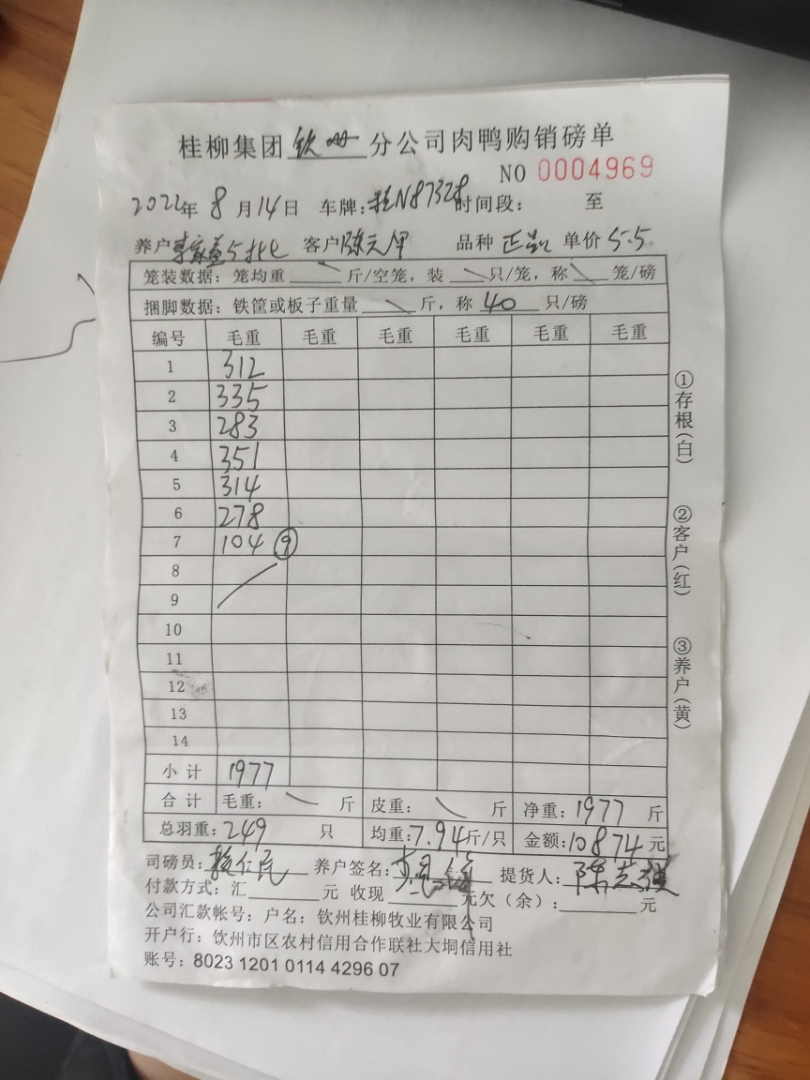 桂柳集团 钦州 分公司肉鸭购销磅单
NO 0004969
2022年 8 月 14 日 车牌: 桂N8732 时间段: 至
养户 客户 陈元甲 品种 正凯 单价 5.5
笼装数据: 笼均重 斤/空笼, 装 只/笼, 称 笼/磅
捆脚数据: 铁筐或板子重量 斤, 称 40 只/磅
编号 毛重 毛重 毛重 毛重 毛重 毛重
1 312
2 335
3 283
4 351
5 314
6 278
7 104 ⑨
8
9
10
11
12
13
14
小 计 1977
合 计 毛重: 斤 皮重: 斤 净重: 1977 斤
总羽重: 249 只 均重: 7.94 斤/只 金额: 10874 元
司磅员: 养户签名: 提货人: 陈志强
付款方式: 汇 元 收现 元欠(余): 元
公司汇款帐号: 户名: 钦州桂柳牧业有限公司
开户行: 钦州市区农村信用合作联社大垌信用社
账号: 8023 1201 0114 4296 07
①存根(白)
②客户(红)
③养户(黄)